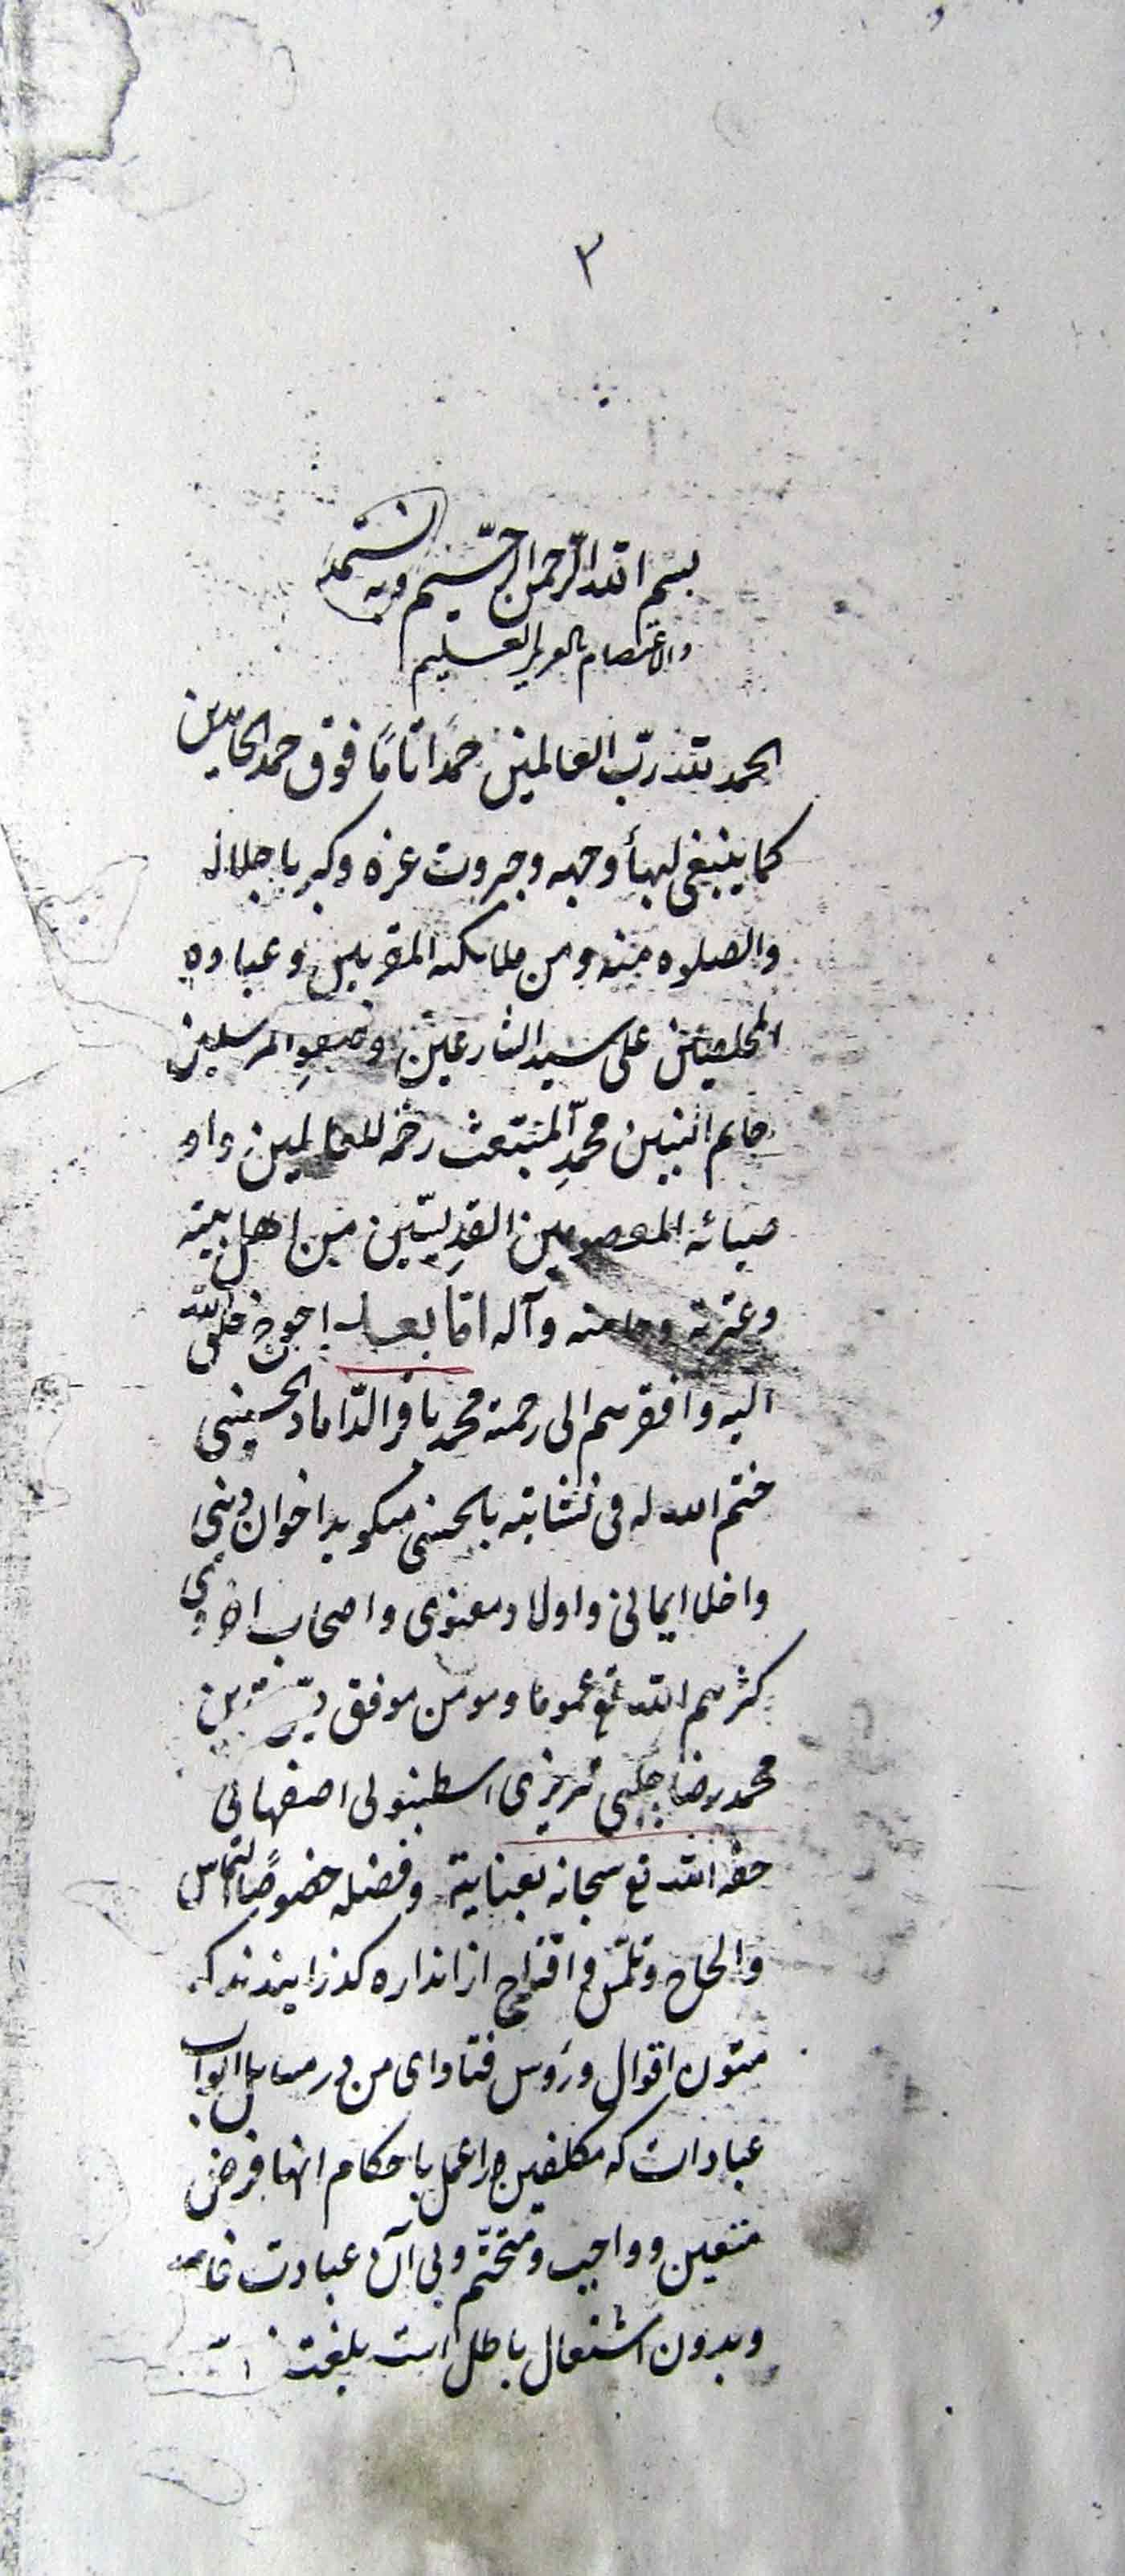 ٣
بسم الله الرّحمن الرّحيم وبه نستمد
والاعتصام بالعزيز العليم
الحمد لله ربّ العالمين حمدًا تامًا فوق حمد الحامدين
كما ينبغى لبهاء وجهه وجبروت عزه وكبريا جلاله
والصلوه منه ومن ملائكته المقربين وعباده
المخلصين على سيد الشارعين وصفو المرسلين
خاتم النبيين محمدٍ المنبعث رحمة للعالمين واو
صيائه المعصومين القدّيسين من اهل بيته
وعترته و حامته وآله امّا بعد احوج خلق الله
اليه وافقرهم الى رحمته محمد باقر الدّاماد الحسينى
ختم الله له فى نشاتيه بالحسنى ميكويد اخوان دينى
واخلا ايمانى واولاد معنوى واصحاب
كثرهم الله تع عموما ومومن موفق
محمد رضا چلبى تبريزى اسطنبولى اصفهانى
حفه الله تع سبحانه بعنايته وفضله خصوصًا التماس
والحاح و اقتراح از اندازه كذرانيدند كه
متون اقوال ورؤس فتاواى من در مسايل ابواب
عبادات كه مكلفين را عمل باحكام انها فرض
متعين وواجب ومتحتّم وبى آن عبادت
وبدون اشتغال باطل است بلغت